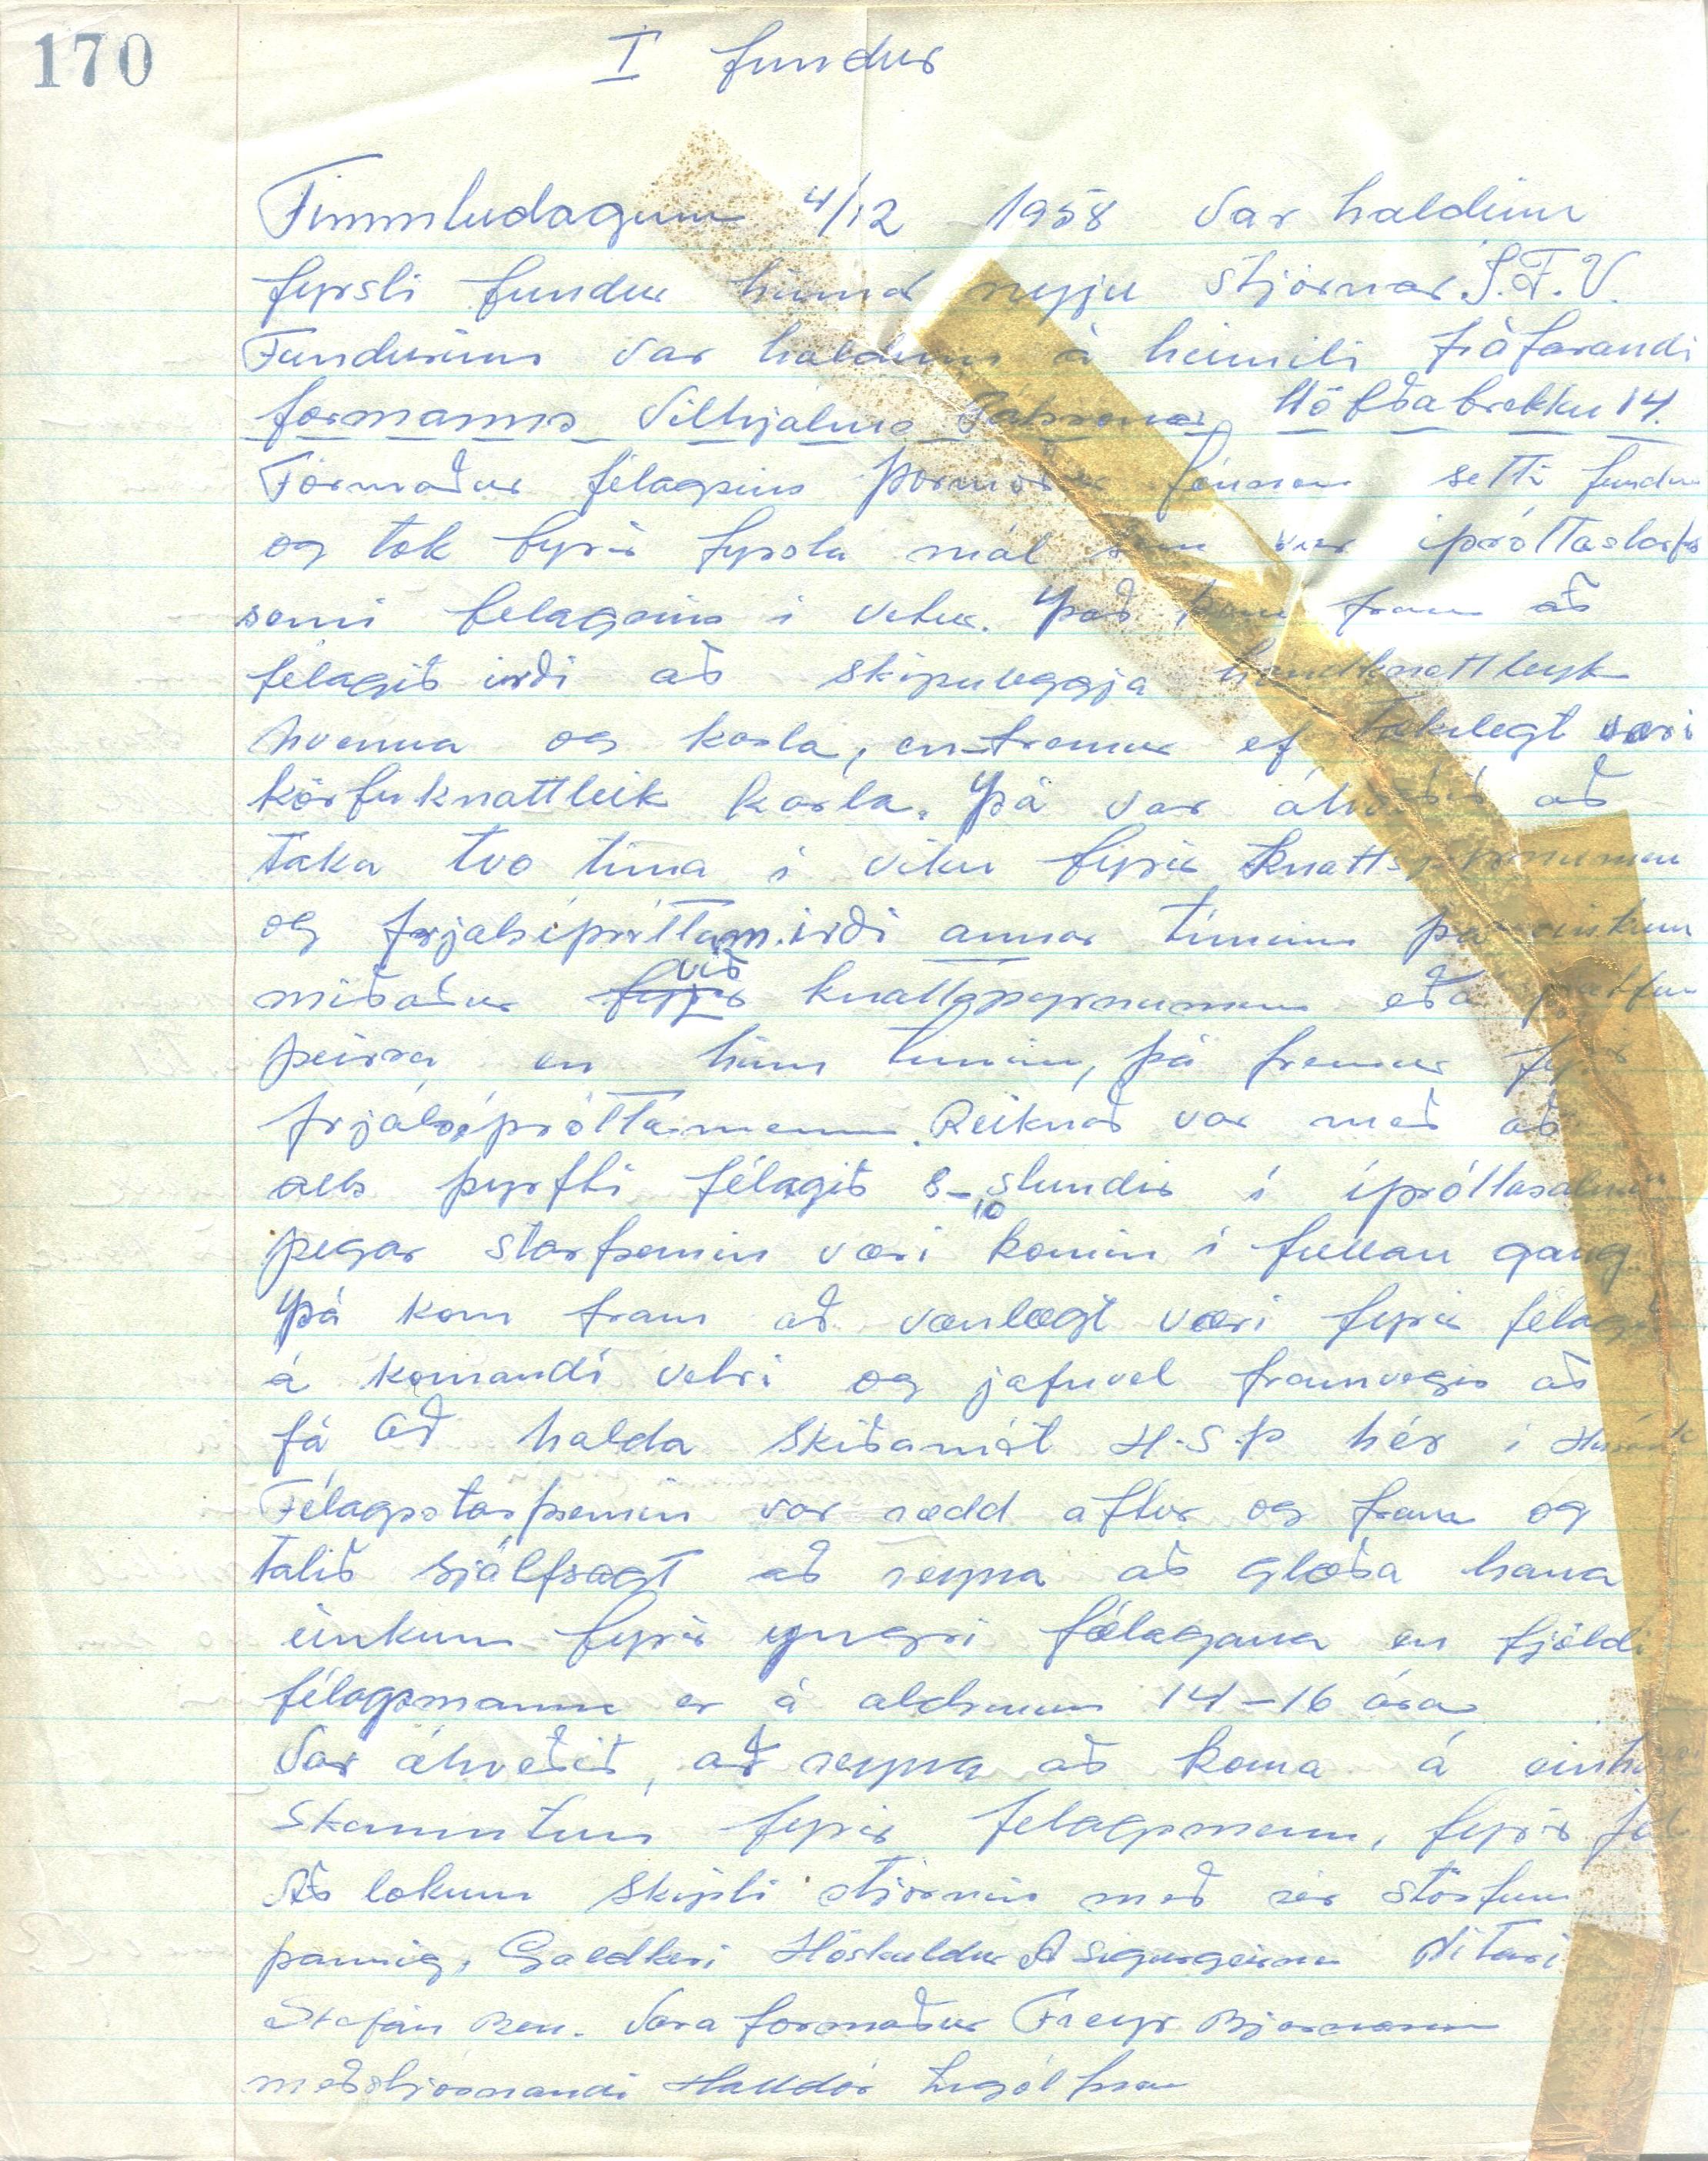 170
I fundur
Fimmtudaginn 4/12 1958 var haldinn
fyrsti fundur hinnar nyju stjórnar Í.F.V.
Fundurinn var haldinn á heimili fráfarandi
formanns Vilhjálms Pálssonar, Höfðabrekku 14.
Formaður félagsins Þormóður Jónsson setti fundin
og tok fyrir fyrsta mál sem var íþróttastarf
semi felagsins i vetur. Það kom fram að
félagið irði að skipuleggja handknattleyk
kvenna og karla, en fremur ef tiltækilegt væri
körfuknattleik karla. Þá var ákveðið að
taka tvo tíma i viku fyrir knattspyrnumenn
og frjalsíþróttam. irði annar tíminn þá einkum
miðaður við knattspyrnumenn eða þrótfun
þeirra en hinn timinn, þá fremur fyrir
frjálsíþróttamenn. Reiknað var með að
alls þyrfti félagið 8-10 stundir i íþróttasalnum
þegar starfsemin væri komin i fullan gang.
Þá kom fram að vænlegt væri fyrir félagið
á komandi vetri og jafnvel framvegis að
fá að halda skiðamót H.S.Þ hér i Húsavík
Félagsstarfsemin var rædd aftur og fram og
talið sjálfsagt að reyna að glæða hana
einkum fyrir yngri félagana en fjöldi
félagsmanna er á aldrinum 14-16 ára
Var ákveðið, að reyna að koma á einhverri
skemmtun fyrir felagsmenn, fyrir jól
Að lokum skipti stjórnin með sér störfum
þannig, Gjaldkeri Höskuldur A Sigurgeirsson Ritari
Stefán Ben. Varaformaður Freyr Bjarnason
meðstjórnandi Halldór Ingólfsson